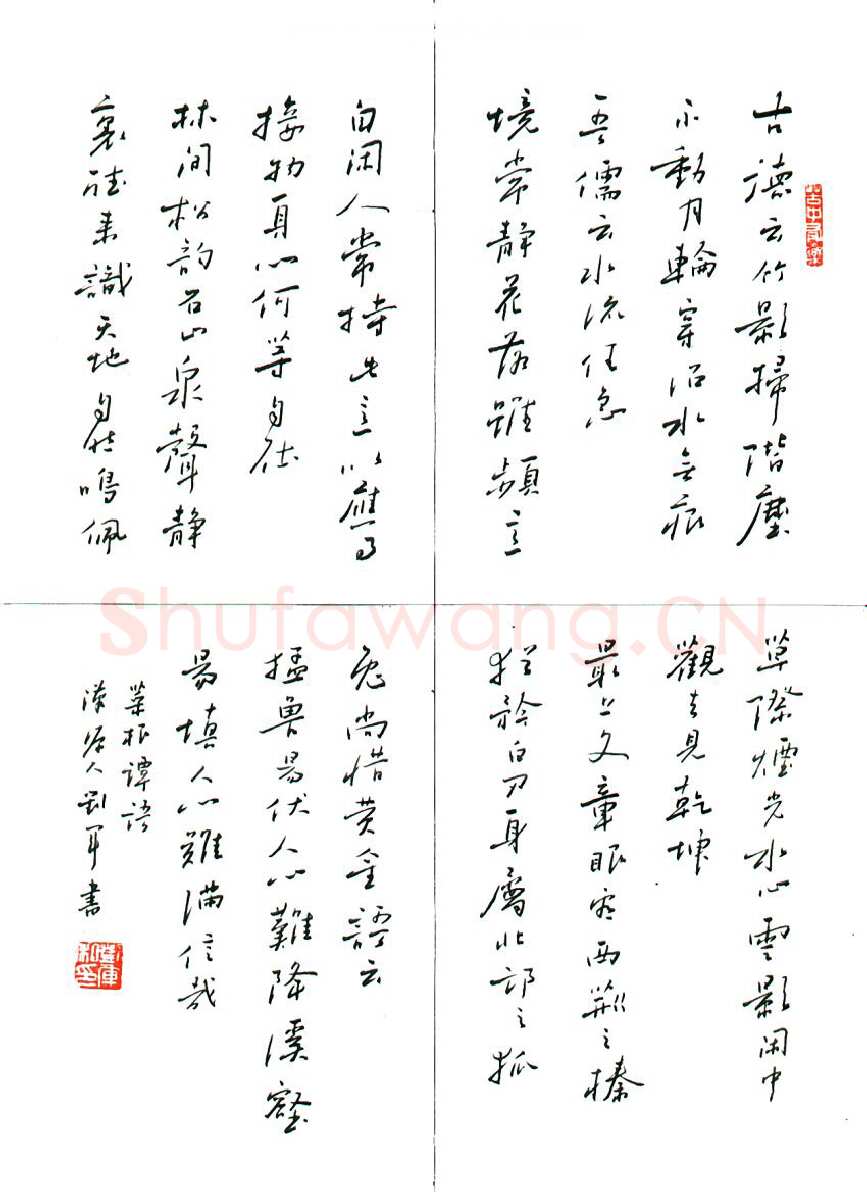 古德云竹影掃階塵
不動月輪穿沼水無痕
吾儒云水流任急
境常静花落雖頻意
自闲人常持此意以應事
接物身心何等自在
林间松韵石上泉聲静
裏聽来識天地自然鳴佩
草際煙光水心雲影闲中
觀去見乾坤
最上文章眼看西荊之榛
猶矜白刃身屬北邙之狐
兔尚惜黄金語云
猛兽易伏人心難降溪壑
易填人心難满信哉
菜根譚語
人劉軍書
Shufawang.CN